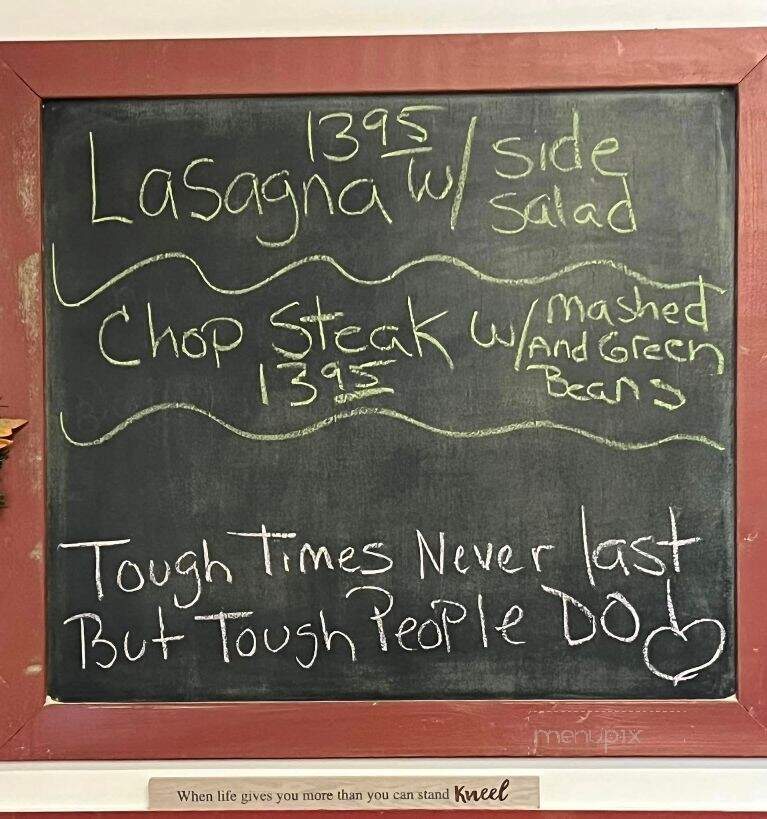 1395
Lasagna w/ side
salad
Chop Steak w/ mashed
And Green
1395 Beans
Tough Times Never last
But Tough People DO!
menupix
When life gives you more than you can stand Kneel